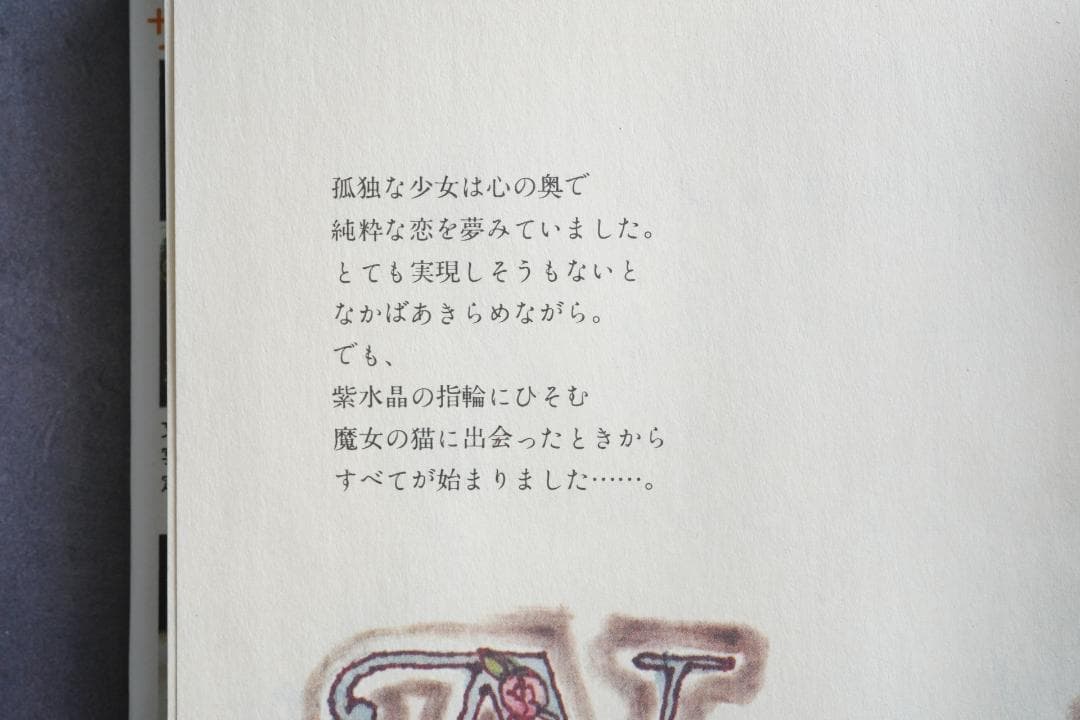 孤独な少女は心の奥で
純粋な恋を夢みていました。
とても実現しそうもないと
なかばあきらめながら。
でも、
紫水晶の指輪にひそむ
魔女の猫に出会ったときから
すべてが始まりました……。